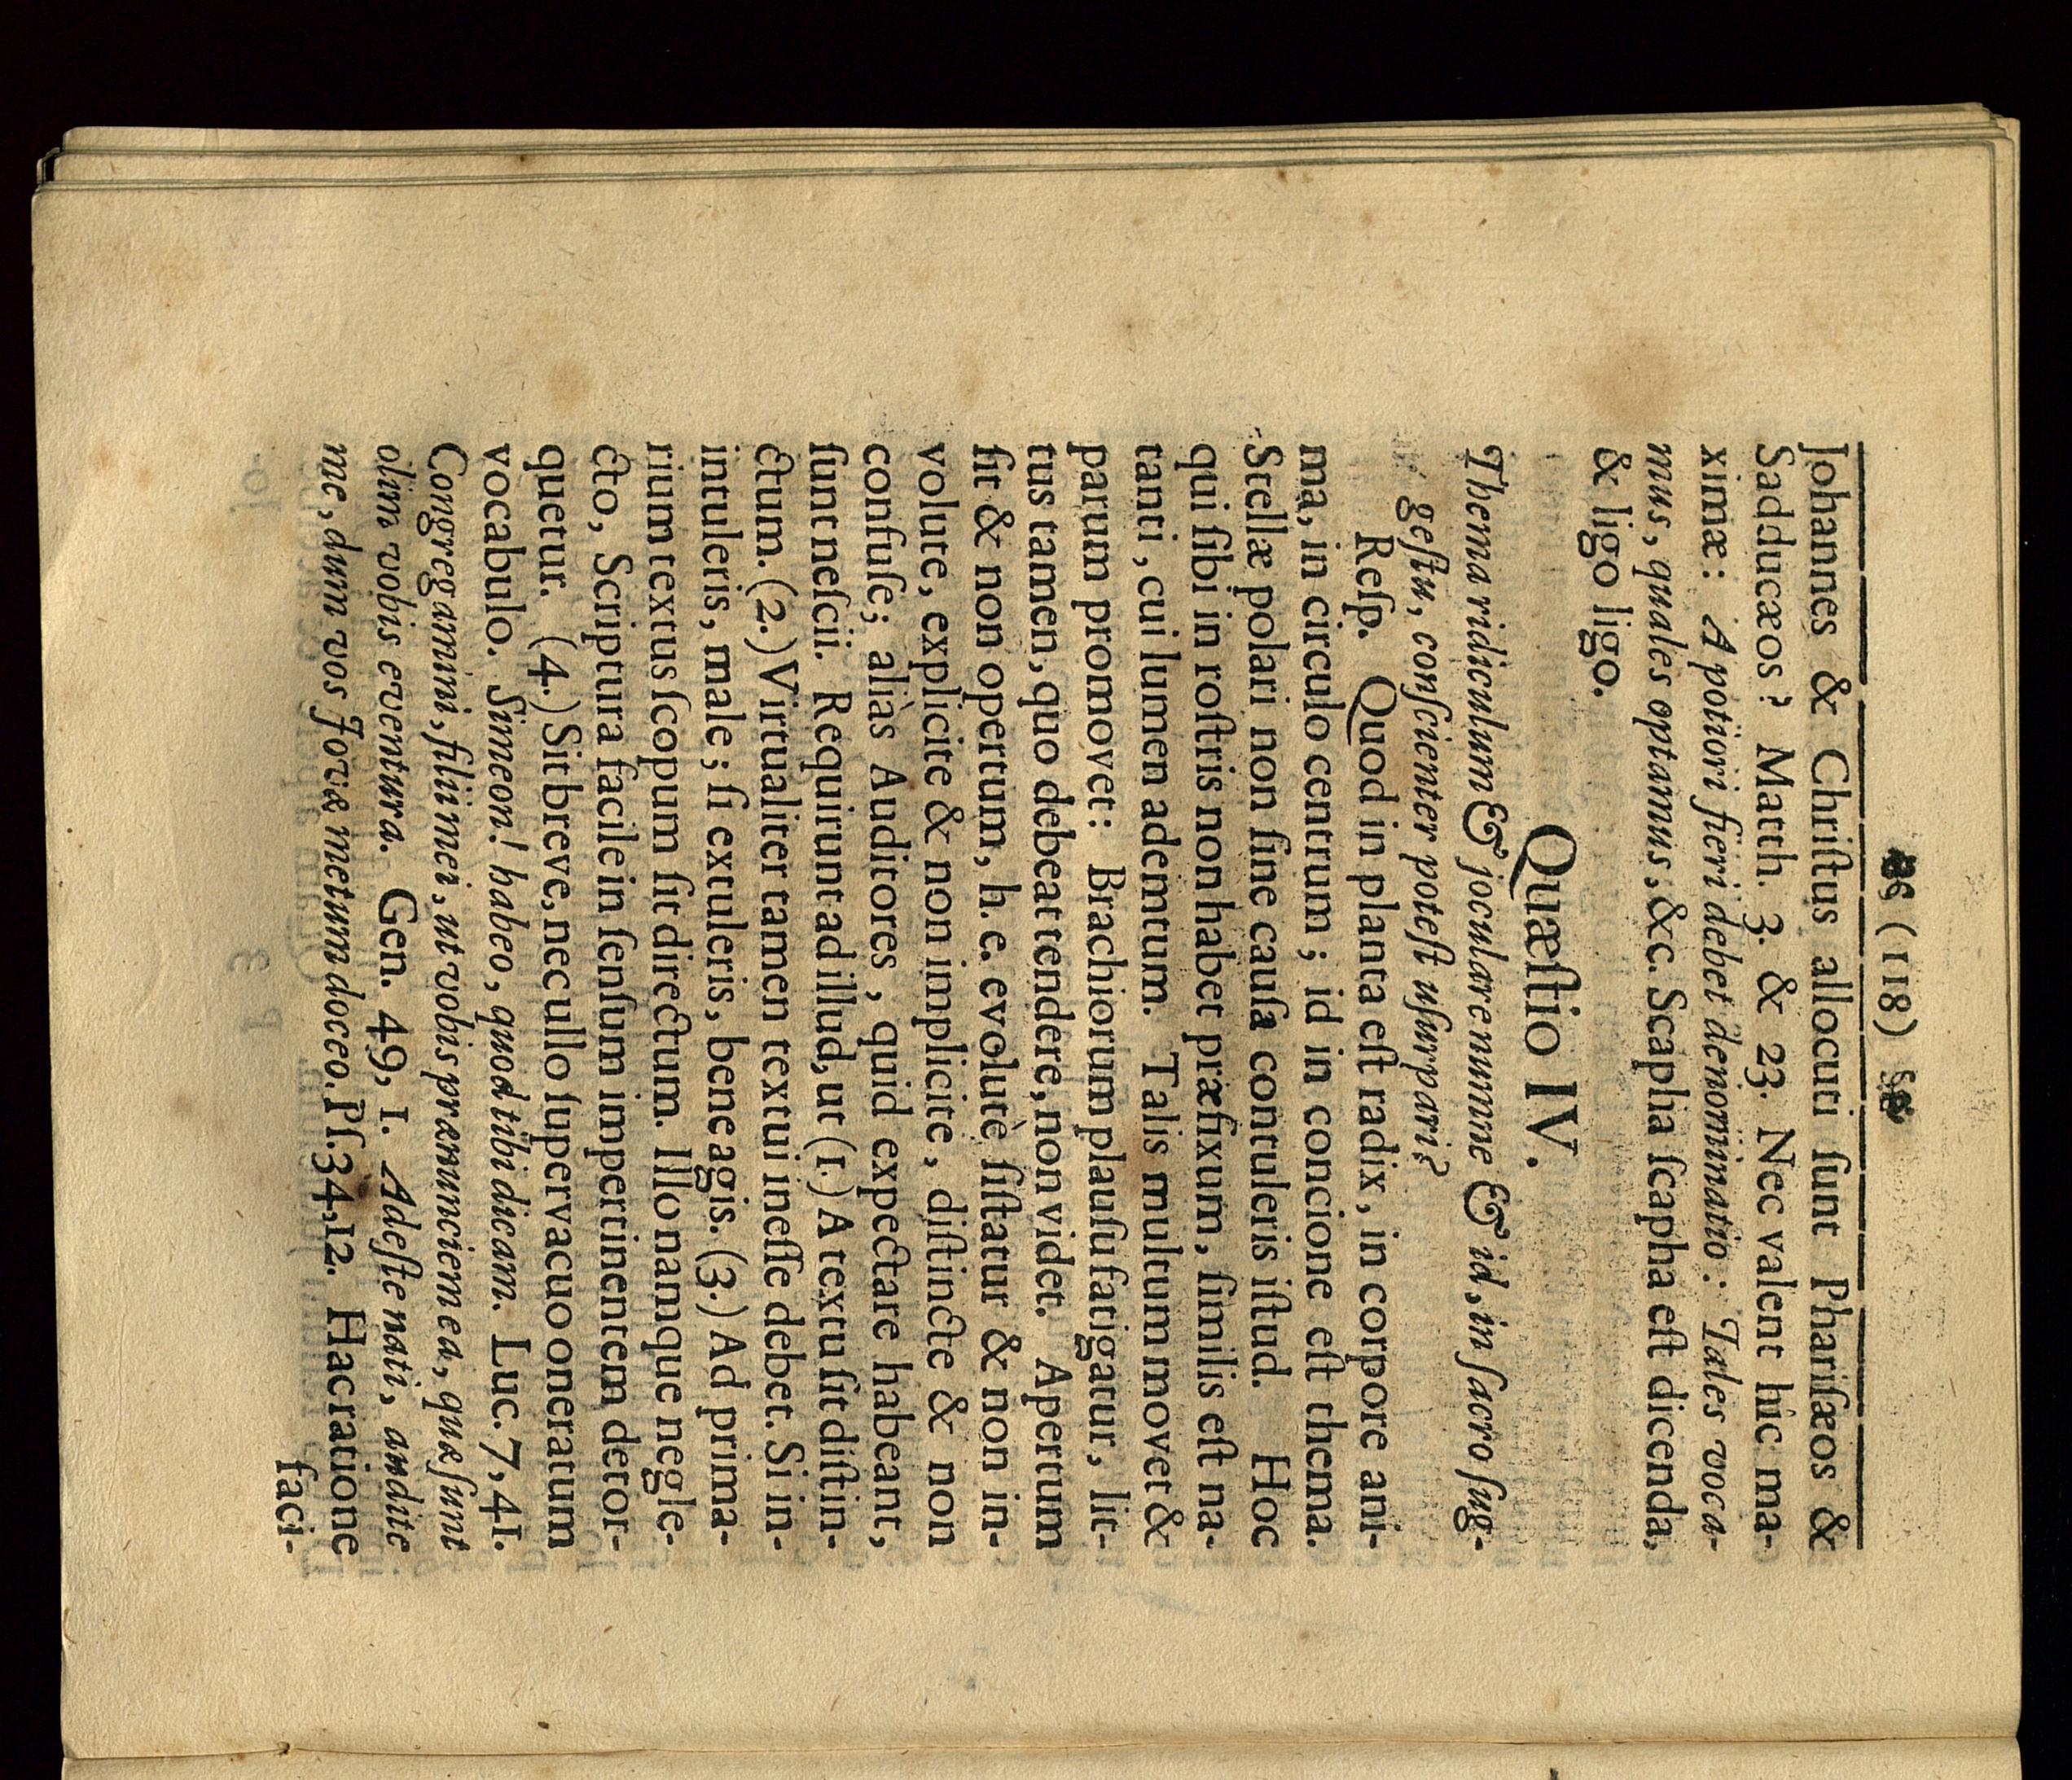 (118)
Johannes & Chriſtus allocuti ſunt Phariſæos &
Sadducæos? Matth. 3. & 23. Nec valent hic ma-
ximæ: A potiori fieri debet denominatio: Tales voca-
mus, quales optamus, &c. Scapha ſcapha eſt dicenda,
& ligo ligo.
Quæſtio IV.
Thema ridiculum & joculare numne & id, in ſacro ſug-
geſtu, conſcienter poteſt uſurpari?
Reſp. Quod in planta eſt radix, in corpore ani-
ma, in circulo centrum; id in concione eſt thema.
Stellæ polari non ſine cauſa contuleris iſtud. Hoc
qui ſibi in roſtris non habet præfixum, ſimilis eſt na-
tanti, cui lumen ademtum. Talis multum movet &
parum promovet: Brachiorum plauſu fatigatur, lit-
tus tamen, quo debeat tendere, non videt. Apertum
ſit & non opertum, h. e. evolutè ſiſtatur & non in-
volute, explicite & non implicite, diſtincte & non
confuſe; aliàs Auditores, quid expectare habeant,
ſunt neſcii. Requirunt ad illud, ut (1.) A textu ſit diſtin-
ctum. (2.) Virtualiter tamen textui ineſſe debet. Si in-
intuleris, male; ſi extuleris, bene agis. (3.) Ad prima-
rium textus ſcopum ſit directum. Illo namque negle-
cto, Scriptura facile in ſenſum impertinentem detor-
quetur. (4.) Sit breve, nec ullo ſupervacuo oneratum
vocabulo. Simeon! habeo, quod tibi dicam. Luc. 7, 41.
Congregamini, filii mei, ut vobis prænunciem ea, quæ ſunt
olim vobis eventura. Gen. 49, 1. Adeſte nati, audite
me, dum vos Jovæ metum doceo. Pſ. 34, 12. Hac ratione
faci-